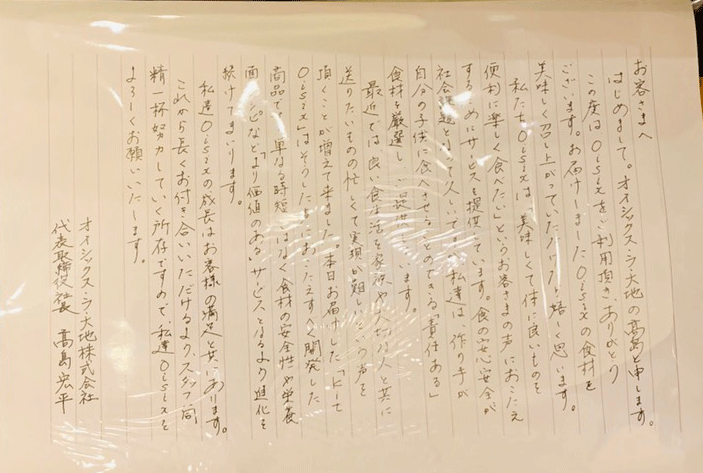 お客さまへ
はじめまして。オイシックス・ラ・大地の高島と申します。
この度はOisixをご利用頂き、ありがとう
ございます。お届けしましたOisixの食材を
美味しく召し上がっていただけたら嬉しく思います。
私たちOisixは、「美味しくて体に良いものを
便利に楽しく食べたい」というお客さまの声におこたえ
するためにサービスを提供しています。食の安心・安全が
社会課題となって久しいですが、私達は、作り手が
自分の子供に食べさせることのできる「責任ある」
食材を厳選し、ご提供しています。
最近では「良い食生活を家族や大切な人と共に
送りたいものの忙しくて実現が難しい」という声を
頂くことが増えて来ました。本日お届けした「Kit
Oisix」はそうした声におこたえすべく開発した
商品です。単なる時短ではなく食材の安全性や栄養
面、レシピなど「より価値のある」サービスとなるよう進化を
続けてまいります。
私達Oisixの成長はお客様の満足と共にあります。
これから長くお付き合いいただけるよう、スタッフ一同、
精一杯努力していく所存ですので、私達Oisixを
よろしくお願いいたします。
オイシックス・ラ・大地株式会社
代表取締役社長 高島宏平